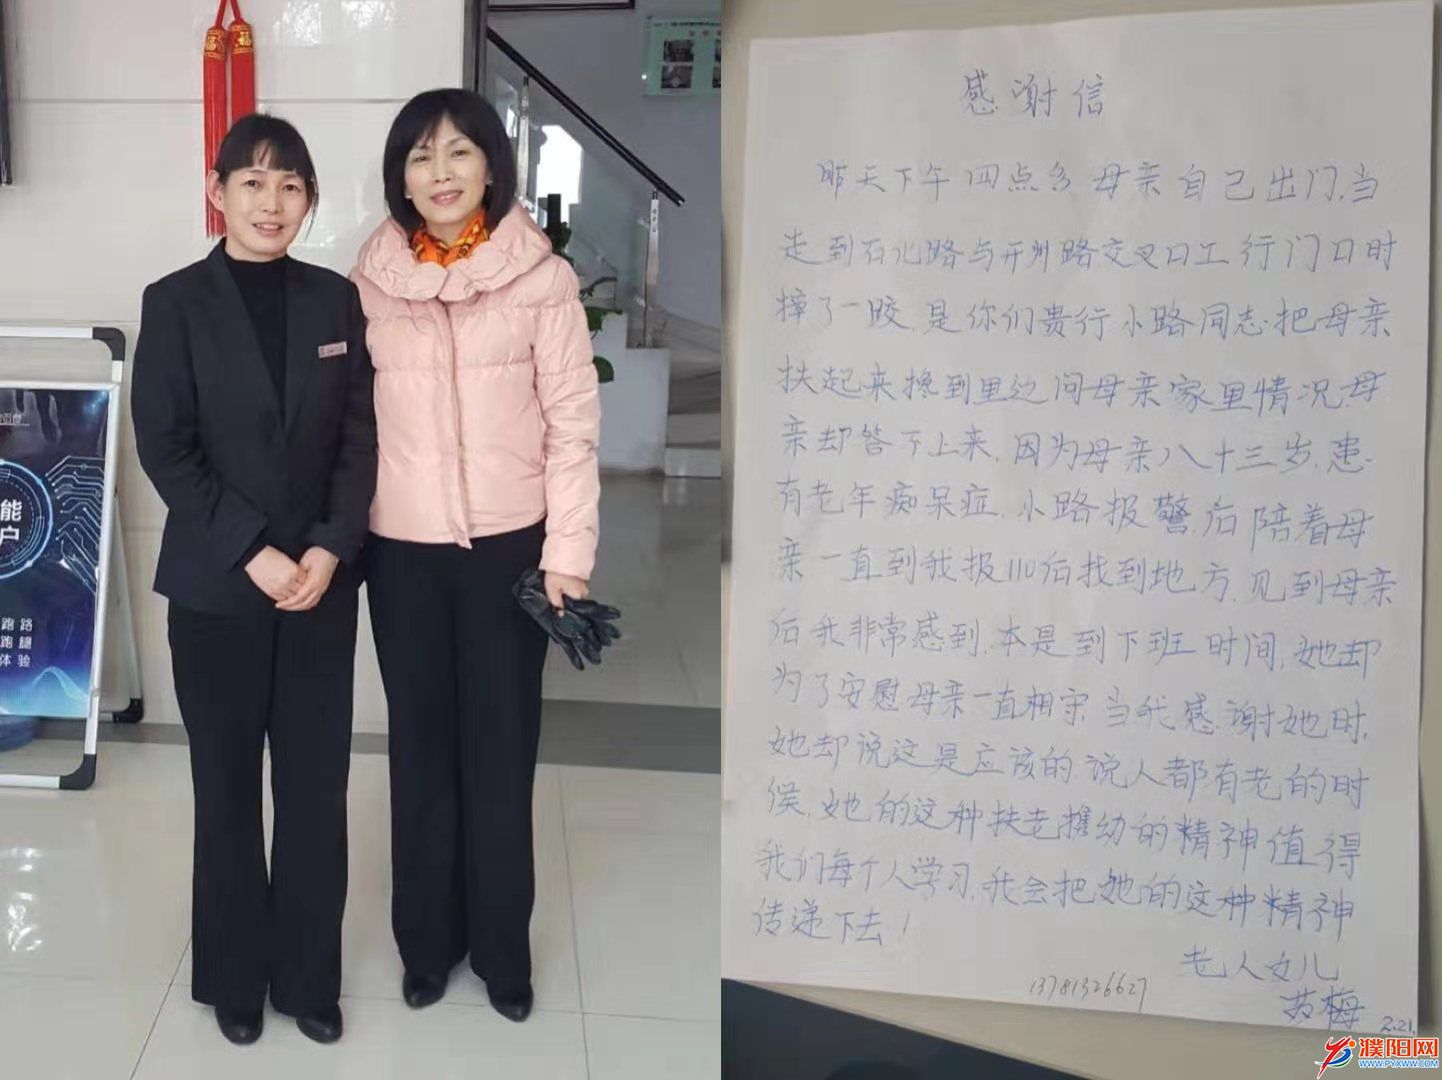 福
福
能
户
跑路
跑腿
体验
感谢信
昨天下午四点多母亲自己出门,当
走到石化路与开州路交叉口工行门口时
摔了一跤,是你们贵行小路同志把母亲
扶起来搀到里边问母亲家里情况,母
亲却答不上来,因为母亲八十三岁,患
有老年痴呆症,小路报警后陪着母
亲一直到我报110后找到地方,见到母亲
后我非常感到,本是到下班时间,她却
为了安慰母亲一直相守,当我感谢她时,
她却说这是应该的,说人都有老的时
候,她的这种扶老携幼的精神值得
我们每个人学习,我会把她的这种精神
传递下去!
老人女儿
13781326627
苏梅
2.21.
濮阳网
WWW.PYXWW.COM